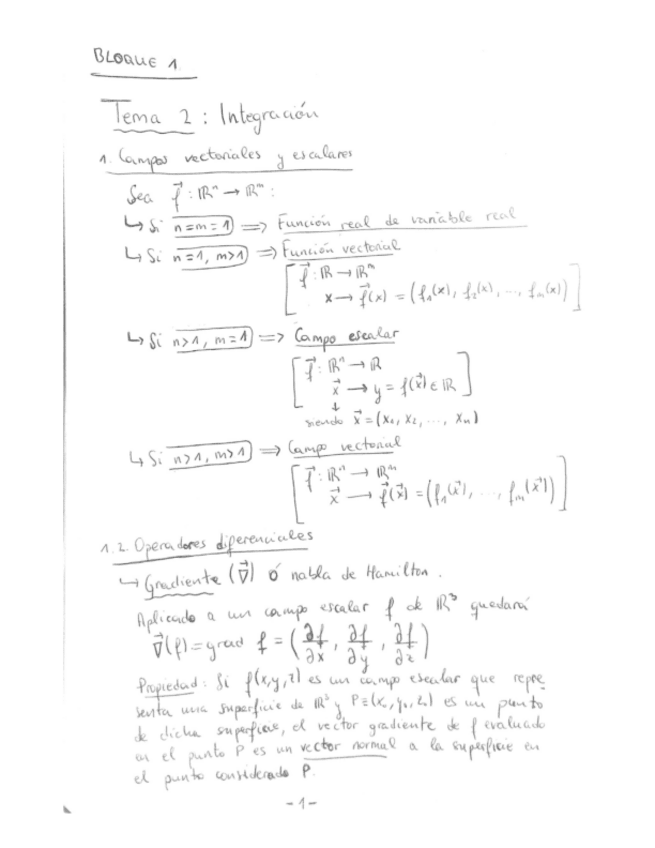 BLOQUE 1
Tema 2: Integración
1. Campos vectoriales y escalares
Sea f⃗ : ℝⁿ → ℝᵐ :
↳ Si n=m=1 ⇒ Función real de variable real
↳ Si n=1, m>1 ⇒ Función vectorial
f⃗ : ℝ → ℝᵐ
x → f⃗(x) = (f₁(x), f₂(x), ..., fₘ(x))
↳ Si n>1, m=1 ⇒ Campo escalar
f⃗ : ℝⁿ → ℝ
x⃗ → y = f(x⃗) ∈ ℝ
↓
siendo x⃗ = (x₁, x₂, ..., xₙ)
↳ Si n>1, m>1 ⇒ Campo vectorial
f⃗ : ℝⁿ → ℝᵐ
x⃗ → f⃗(x⃗) = (f₁(x⃗), ..., fₘ(x⃗))
1.2. Operadores diferenciales
↳ Gradiente (∇⃗) ó nabla de Hamilton.
Aplicado a un campo escalar f de ℝ³ quedará
∇⃗(f) = grad f = (∂f/∂x, ∂f/∂y, ∂f/∂z)
Propiedad: Si f(x,y,z) es un campo escalar que repre
senta una superficie de ℝ³ y P≡(x₀, y₀, z₀) es un punto
de dicha superficie, el vector gradiente de f evaluado
en el punto P es un vector normal a la superficie en
el punto considerado P.
-1-